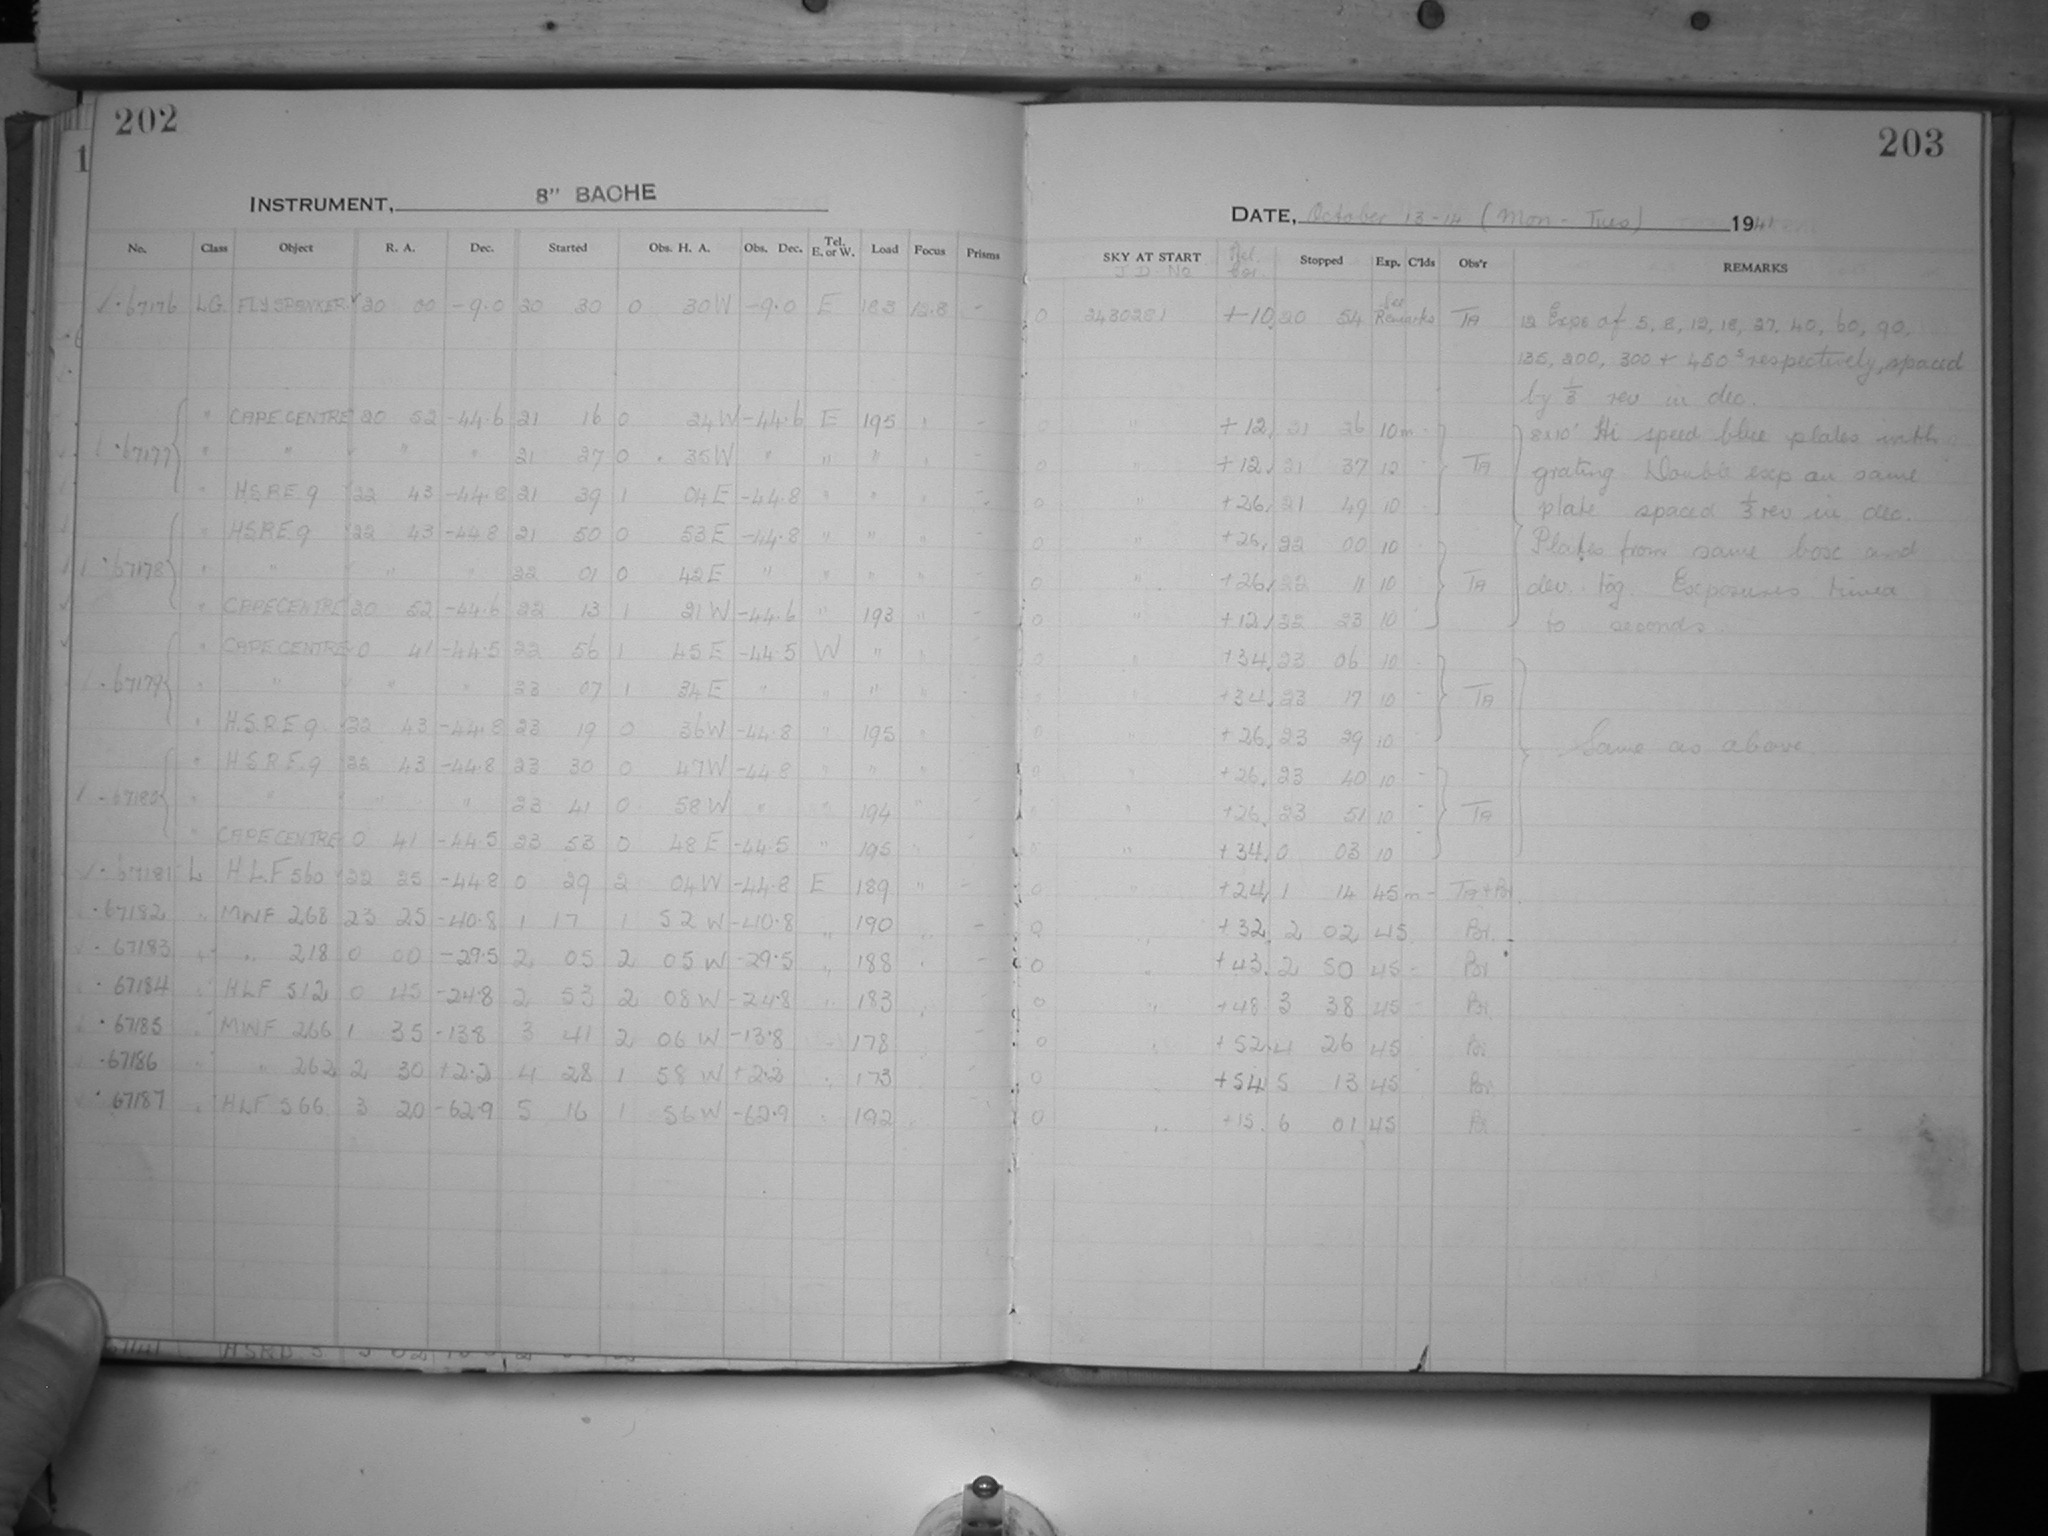 202
1
INSTRUMENT, 8" BACHE
No. Class Object R. A. Dec. Started Obs. H. A. Obs. Dec. Tel. E. or W. Load Focus Prisms
67176 LG. FLYSPANKER 20 00 -9.0 20 30 0 30W -9.0 E 183 12.8 -
" CAPE CENTRE 20 52 -44.6 21 16 0 24W -44.6 E 195 " -
67177 " " " " 21 27 0 35W " " " " -
" H.S.R.E. 9 22 43 -44.8 21 39 1 04E -44.8 " " " -
" HSRE 9 22 43 -44.8 21 50 0 53E -44.8 " " " -
67178 " " " " 22 01 0 42E " " " " -
" CAPE CENTRE 20 52 -44.6 22 13 1 21W -44.6 " 193 " -
" CAPE CENTRE 0 41 -44.5 22 56 1 45E -44.5 W " " -
67179 " " " " 23 07 1 34E " " " " -
" H.S.R.E 9 22 43 -44.8 23 19 0 36W -44.8 " 195 " -
" H.S.R.E. 9 22 43 -44.8 23 30 0 47W -44.8 " " " -
67180 " " " " 23 41 0 58W " " 194 " -
" CAPE CENTRE 0 41 -44.5 23 53 0 48E -44.5 " 195 " -
67181 L HLF 560 22 25 -44.8 0 29 2 04W -44.8 E 189 " -
67182 " MWF 268 23 25 -40.8 1 17 1 52W -40.8 " 190 " -
67183 " " 218 0 00 -29.5 2 05 2 05W -29.5 " 188 " -
67184 " HLF 512 0 45 -24.8 2 53 2 08W -24.8 " 183 " -
67185 " MWF 266 1 35 -13.8 3 41 2 06W -13.8 " 178 " -
67186 " " 262 2 30 +2.2 4 28 1 58W +2.2 " 173 " -
67187 " HLF 566 3 20 -62.9 5 16 1 56W -62.9 " 192 " -
203
DATE, October 13-14 (Mon - Tues) 1941
SKY AT START Stopped Exp. C'lds Obs'r REMARKS
J D No
0 2430281 +10 20 54 See Remarks TA 12 Exps of 5, 8, 12, 18, 27, 40, 60, 90,
135, 200, 300 + 450 s respectively, spaced
by 1/3 rev in dec.
0 " +12 21 26 10m - 8x10' Hi speed blue plates with
0 " +12 21 37 10 - TA grating. Double exp on same
0 " +26 21 49 10 - plate spaced 1/3 rev in dec.
0 " +26 22 00 10 - Plates from same box and
0 " +26 22 11 10 - TA dev. tog. Exposures timed
0 " +12 22 23 10 - to seconds.
0 " +34 23 06 10 -
0 " +34 23 17 10 - TA
0 " +26 23 29 10 - Same as above
0 " +26 23 40 10 -
0 " +26 23 51 10 - TA
0 " +34 0 03 10 -
0 " +24 1 14 45m - TA + Br
0 " +32 2 02 45 Br
0 " +43 2 50 45 - Br
0 " +48 3 38 45 - Br
0 " +52 4 26 45 Br
0 " +54 5 13 45 Br
0 " +15 6 01 45 Br